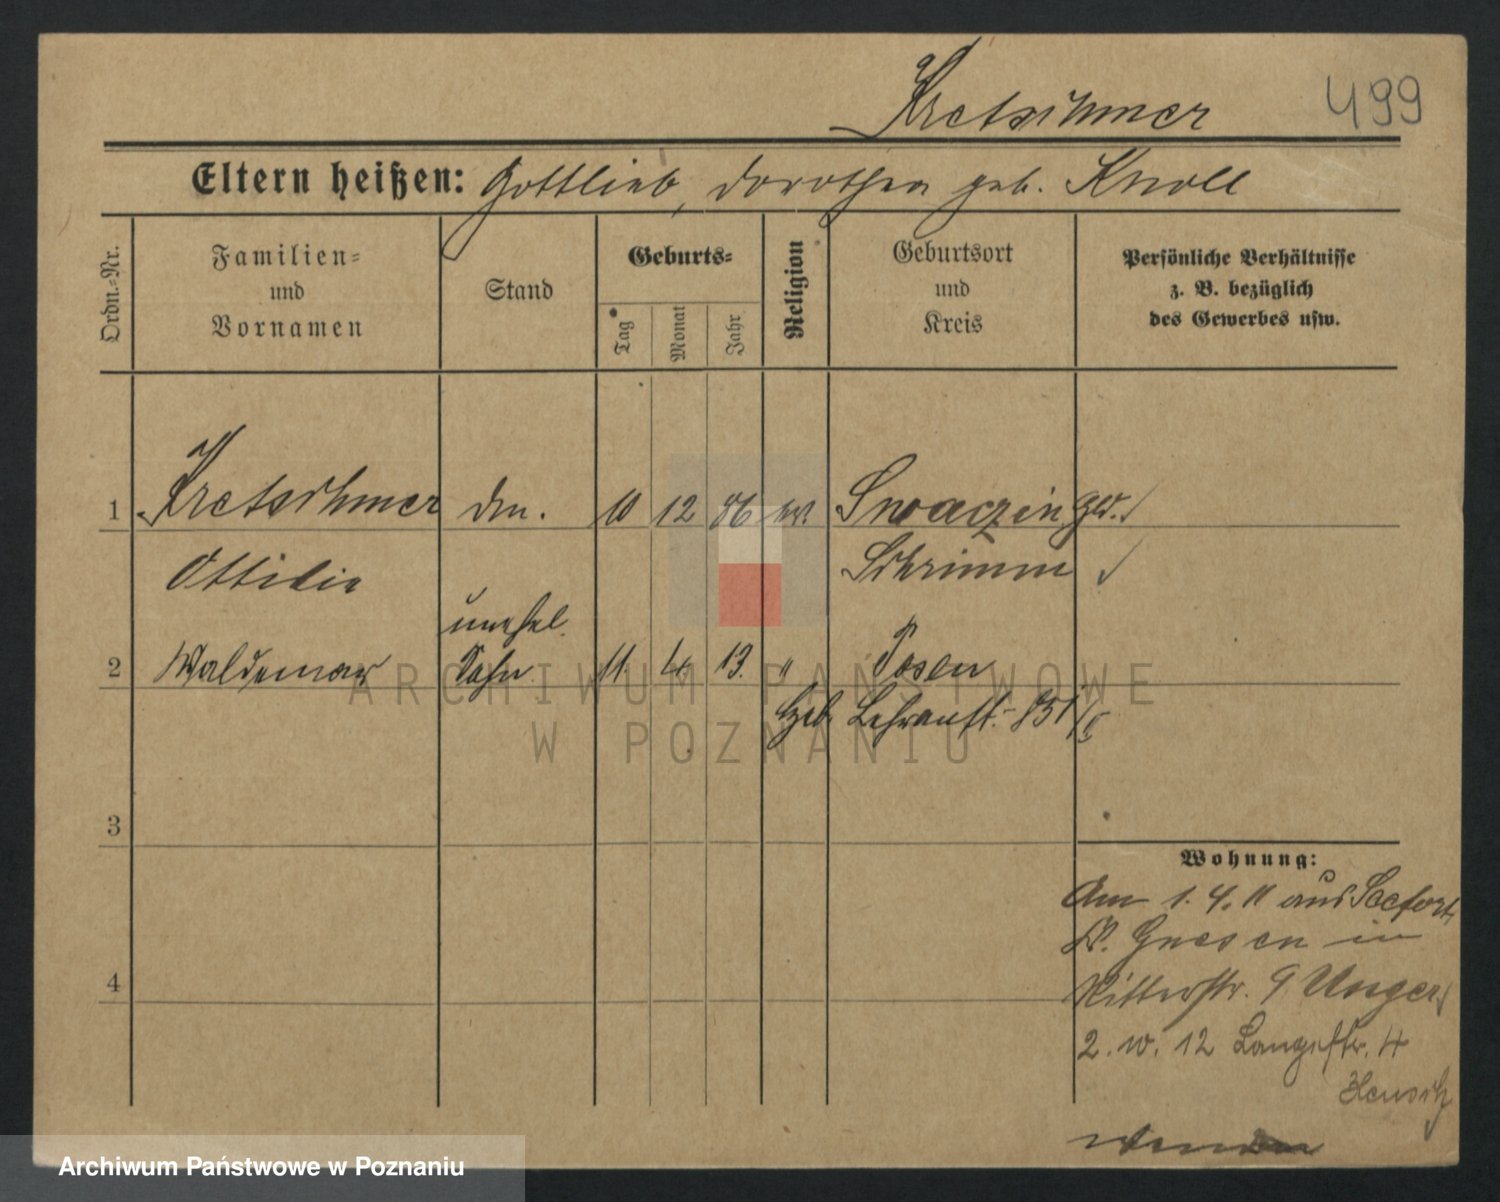 Kretschmer
499
Eltern heißen: Gottlieb, Dorothea geb. Knoll
Ordn.-Nr.
Familien- und Vornamen
Stand
Geburts-
Tag
Monat
Jahr
Religion
Geburtsort und Kreis
Persönliche Verhältnisse
z. B. bezüglich
des Gewerbes usw.
1 Kretschmer 10 12 86
Ottilie Schrimm
unehel.
2 Waldemar Sohn 11. 4. 13. " Posen
Geb. Lehranst. 851/
3
Wohnung:
Am 1. 4. 11 aus Seefort
Kr. Gnesen in
4
Ritterstr. 9 Unger
2. w. 12 Langestr. 4
wenden
ARCHIWUM PAŃSTWOWE
W POZNANIU
Archiwum Państwowe w Poznaniu